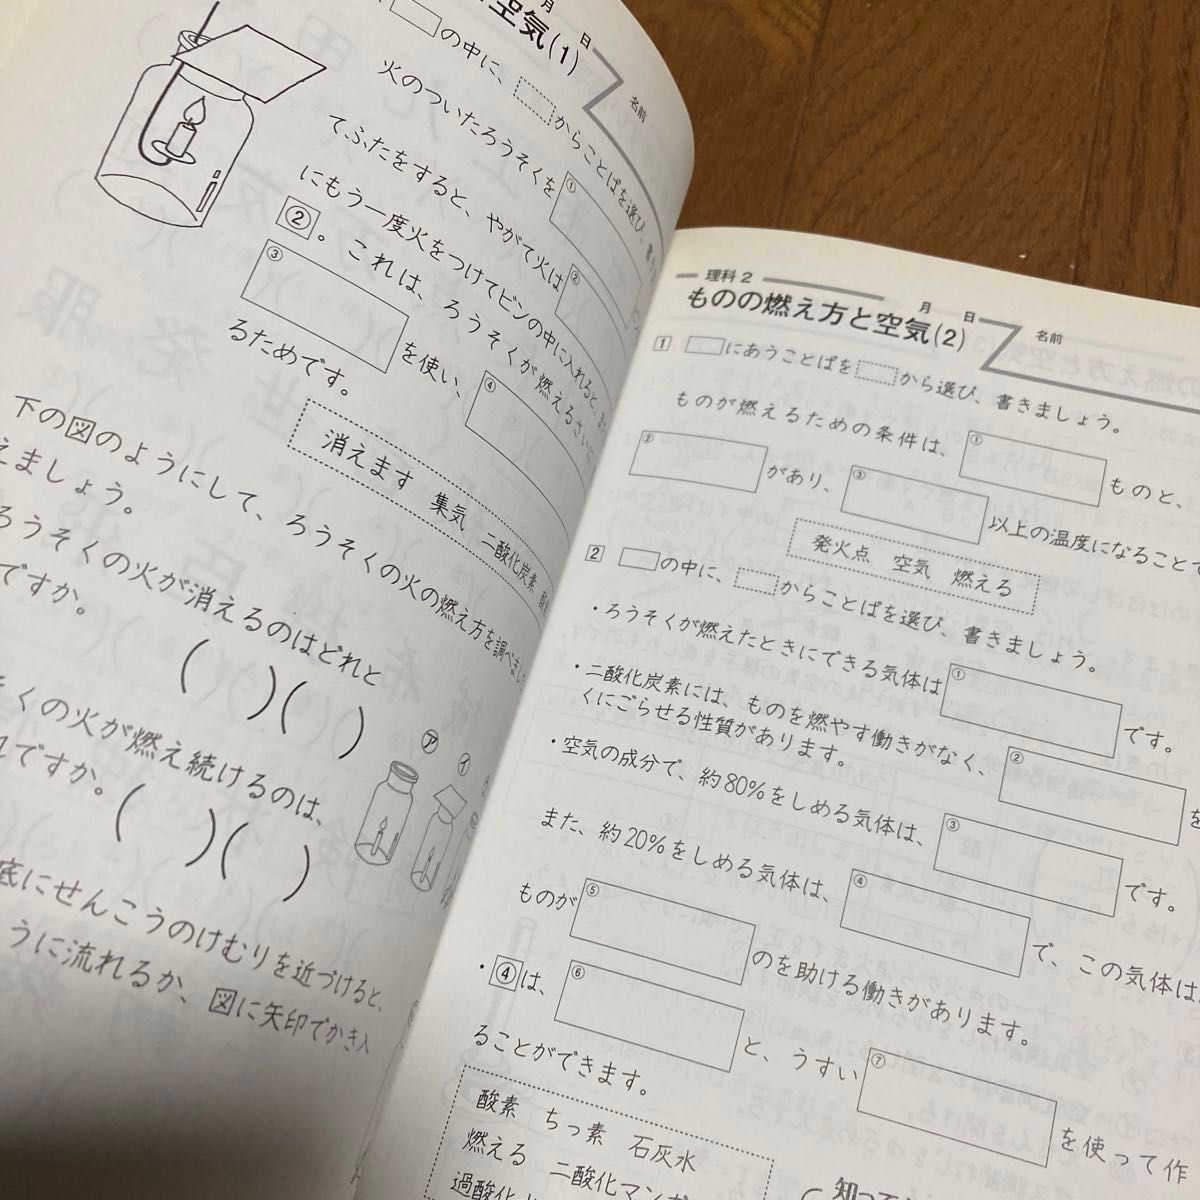 空気(1)
月
日
名前
の中に、からことばを選び、書き
火のついたろうそくを①
てふたをすると、やがて火は②
にもう一度火をつけてビンの中に入れると、
②。これは、ろうそくが燃えるさいに
③を使い、④
るためです。
消えます 集気 二酸化炭素
下の図のようにして、ろうそくの火の燃え方を調べまし
えましょう。
ろうそくの火が消えるのはどれと
ですか。
( )( )
くの火が燃え続けるのは、
ですか。
( )( )
ア
イ
底にせんこうのけむりを近づけると、
うに流れるか、図に矢印でかき入
理科2
ものの燃え方と空気(2)
月 日
名前
1 にあうことばをから選び、書きましょう。
ものが燃えるための条件は、①ものと、
②があり、③以上の温度になることで
発火点 空気 燃える
2 の中に、からことばを選び、書きましょう。
・ろうそくが燃えたときにできる気体は①です。
・二酸化炭素には、ものを燃やす働きがなく、②を
くにごらせる性質があります。
・空気の成分で、約80%をしめる気体は、③です。
また、約20%をしめる気体は、④で、この気体は
ものが⑤のを助ける働きがあります。
・④は、⑥と、うすい⑦を使って作
ることができます。
酸素 ちっ素 石灰水
燃える 二酸化マンガ
過酸化
知って